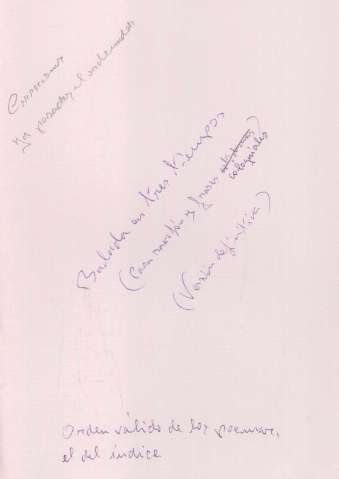 Correcciones
ya pasadas al ordenador
Balada en tres tiempos
(para saxofón y frases
coloquiales
(Versión definitiva)
Orden válido de los poemas,
el del índice